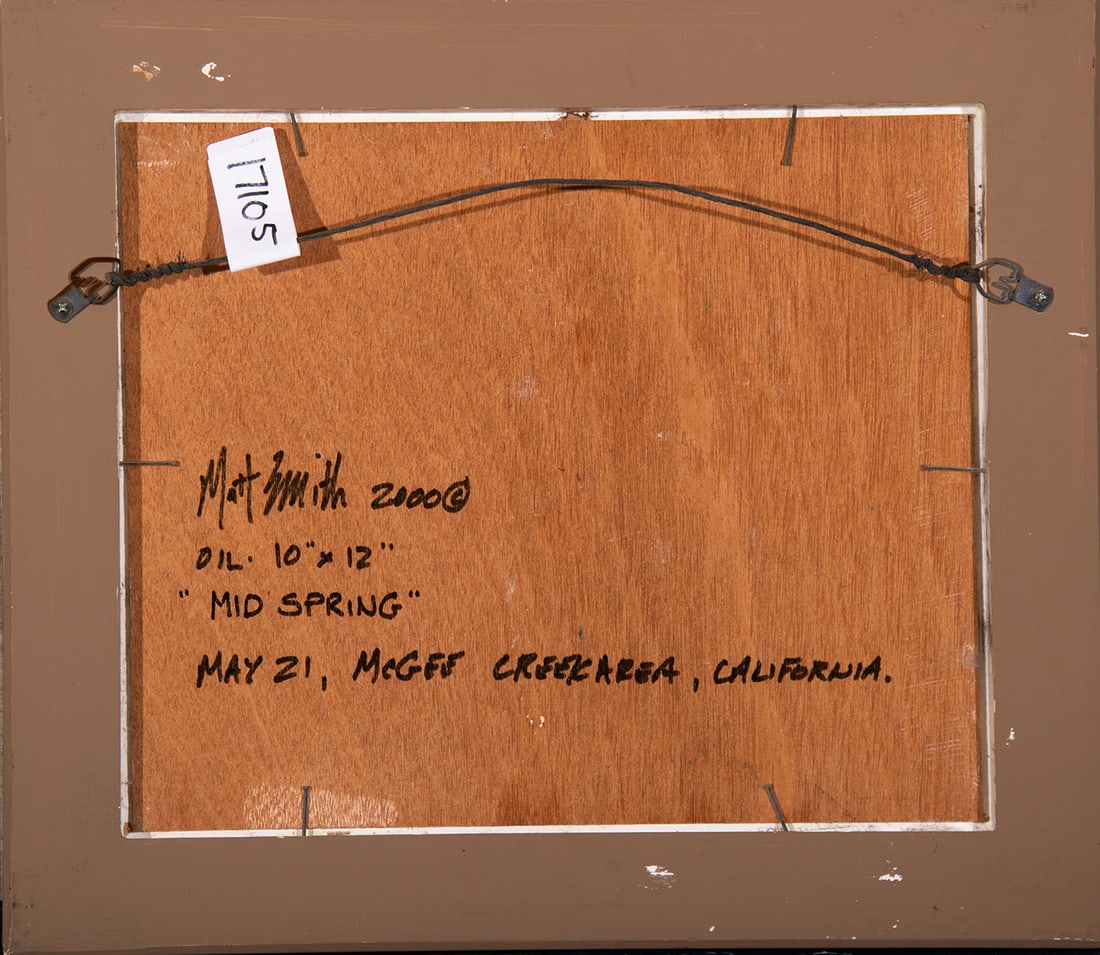 17105
Matt Smith 2000©
OIL. 10" x 12"
" MID SPRING "
MAY 21, McGEE CREEK AREA, CALIFORNIA.